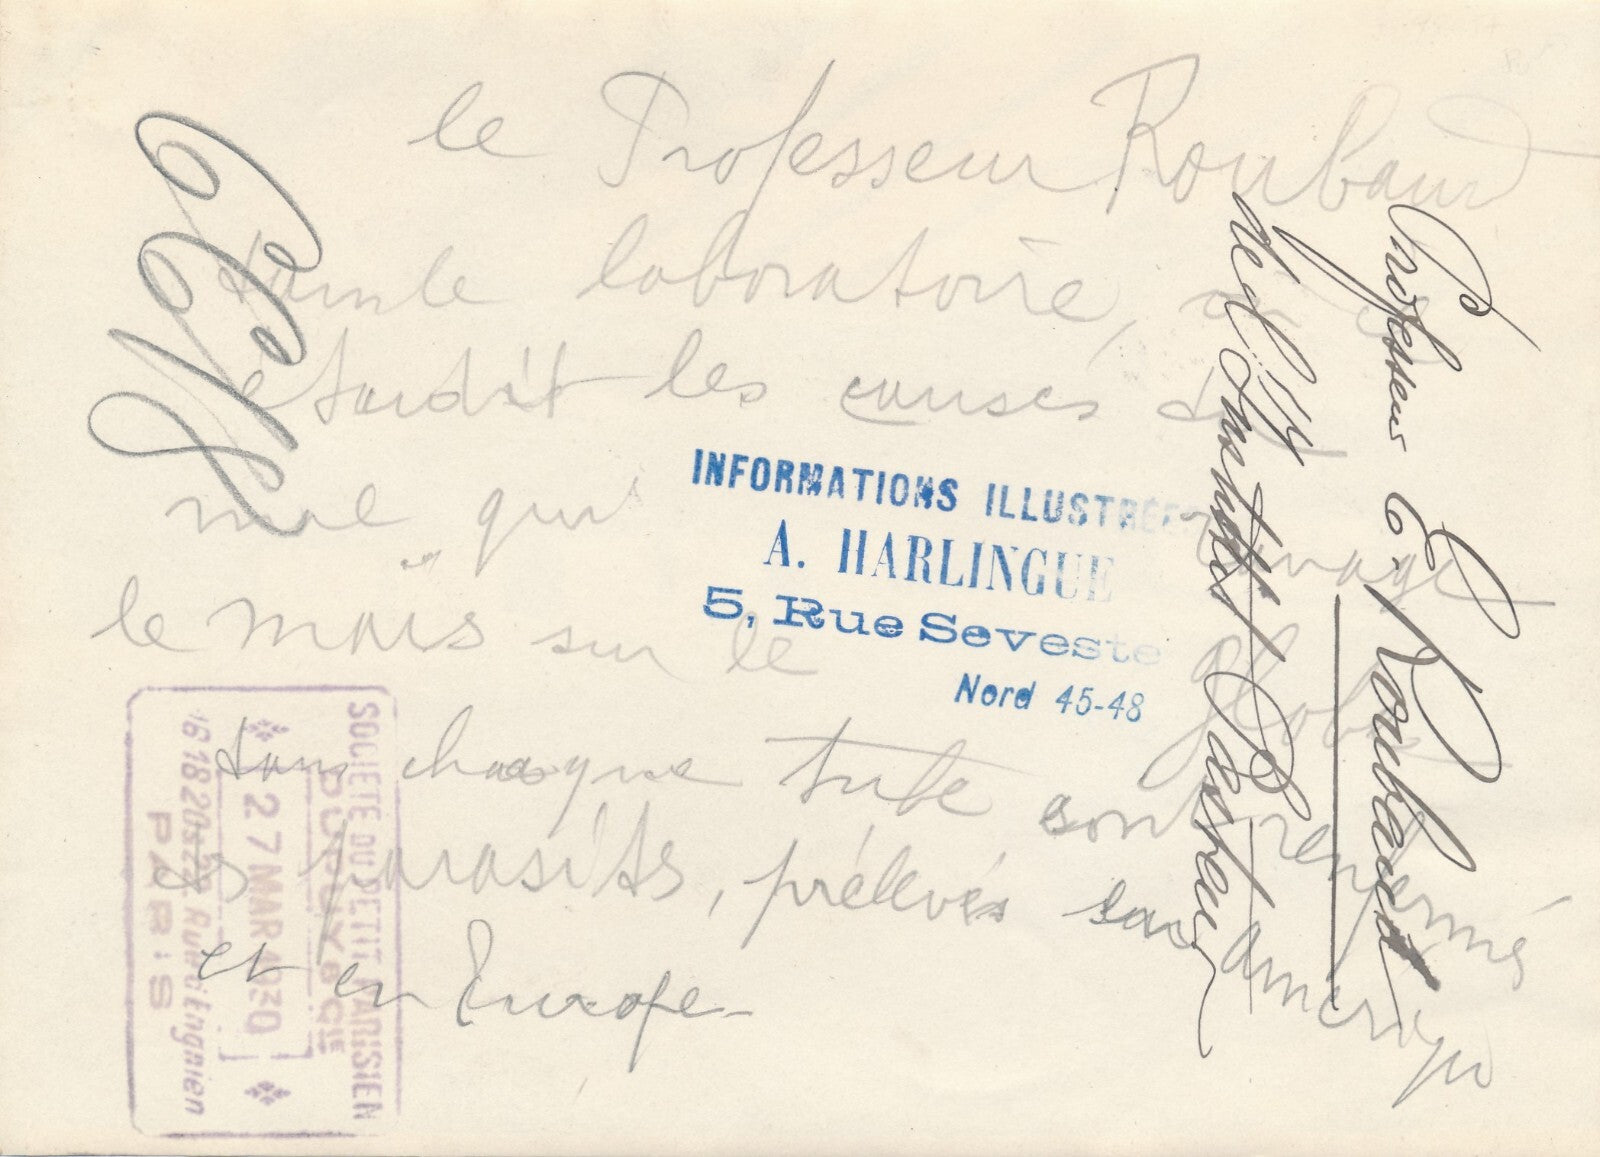 le Professeur Roubaud
dans le laboratoire, où
étudit les causes du
mal qui ravage
le maïs sur le globe
dans chaque tube sont renfermés
parasites, prélevés en amérique
et en Europe -
INFORMATIONS ILLUSTRÉES
A. HARLINGUE
5, Rue Seveste
Nord 45-48
Professeur E. Roubaud
de l'Institut Pasteur
SOCIÉTÉ DU PETIT PARISIEN
DUPUY & CIE
27 MAR 1930
16 18 20 & 22 Rue d'Enghien
PARIS